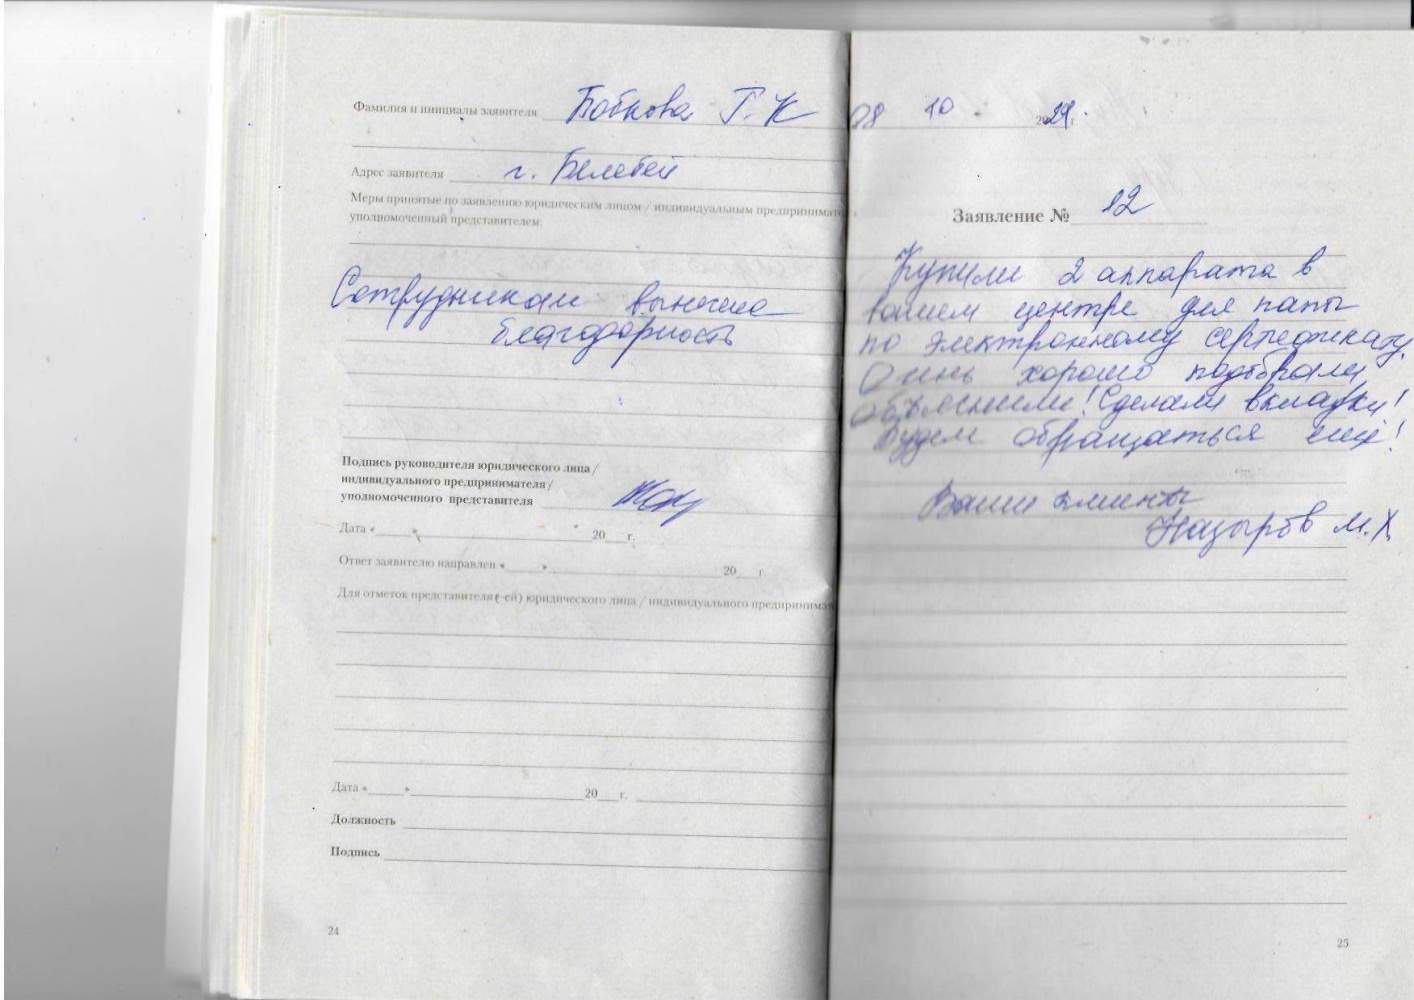 Фамилия и инициалы заявителя Бобкова Г. К
Адрес заявителя г. Белебей
Меры принятые по заявлению юридическим лицом / индивидуальным предпринимат
уполномоченный представителем:
Сотрудникам вынесена
благодарность
Подпись руководителя юридического лица /
индивидуального предпринимателя /
уполномоченного представителя
Дата « » 20 г.
Ответ заявителю направлен « » 20 г.
Для отметок представителя (-ей) юридического лица / индивидуального предпринимат
Дата « » 20 г.
Должность
Подпись
24
08 10 2024.
Заявление № 12
Купили 2 аппарата в
вашем центре для папы
по электронному сертификату.
Очень хорошо подобрали,
объяснили! Сделали вкладки!
Будем обращаться ещё!
Ваши клиенты
Назыров М.Х
25